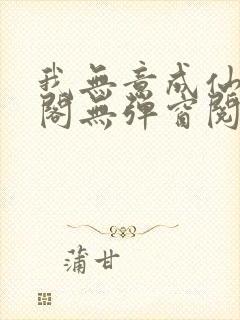 我無意成仙
閣無彈窗閱
蒲甘